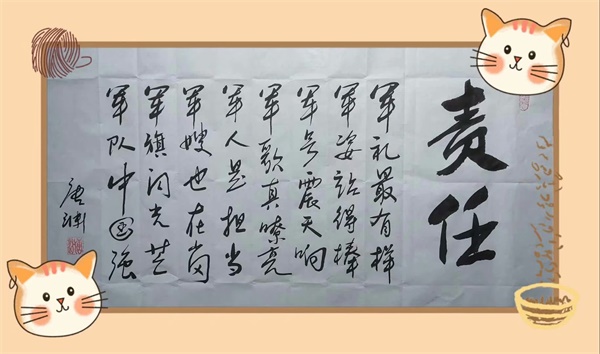 责任
军礼最有样
军姿站得棒
军号震天响
军歌真嘹亮
军人是担当
军嫂也在岗
军旗闪光芒
军队中国强